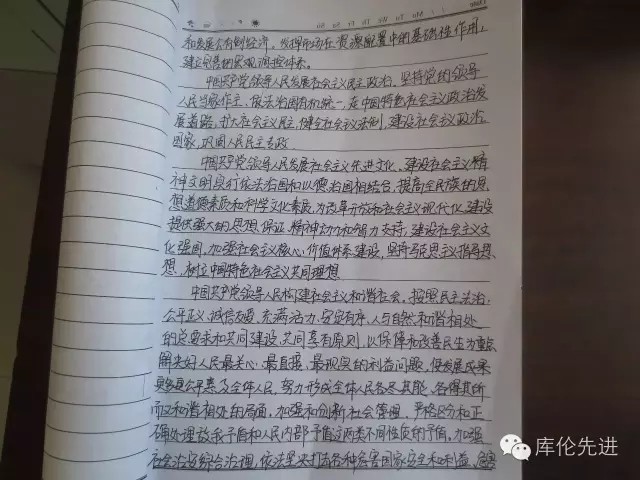 和发展公有制经济，发挥市场在资源配置中的基础性作用，
建立完善的宏观调控体系。
中国共产党领导人民发展社会主义民主政治。坚持党的领导
人民当家作主、依法治国有机统一，在中国特色社会主义政治发
展道路，扩大社会主义民主，健全社会主义法制，建设社会主义政治
国家，巩固人民民主专政
中国共产党领导人民发展社会主义先进文化。建设社会主义精
神文明实行依法治国和以德治国相结合，提高全民族的思
想道德素质和科学文化素质，为改革开放和社会主义现代化建设
提供强大的思想保证、精神动力和智力支持，建设社会主义文
化强国。加强社会主义核心价值体系建设，坚持马克思主义指导思
想，树立中国特色社会主义共同理想
中国共产党领导人民构建社会主义和谐社会。按照民主法治、
公平正义、诚信友爱、充满活力、安定有序、人与自然和谐相处
的总要求和共同建设、共同享有原则，以保障和改善民生为重点
解决好人民最关心、最直接、最现实的利益问题，使发展成果
更多更公平惠及全体人民，努力形成全体人民各尽其能、各得其所
而又和谐相处的局面。加强和创新社会管理。严格区分和正
确处理敌我矛盾和人民内部矛盾这两类不同性质的矛盾。加强
社会治安综合治理，依法坚决打击各种危害国家安全和利益、危害
库伦先进